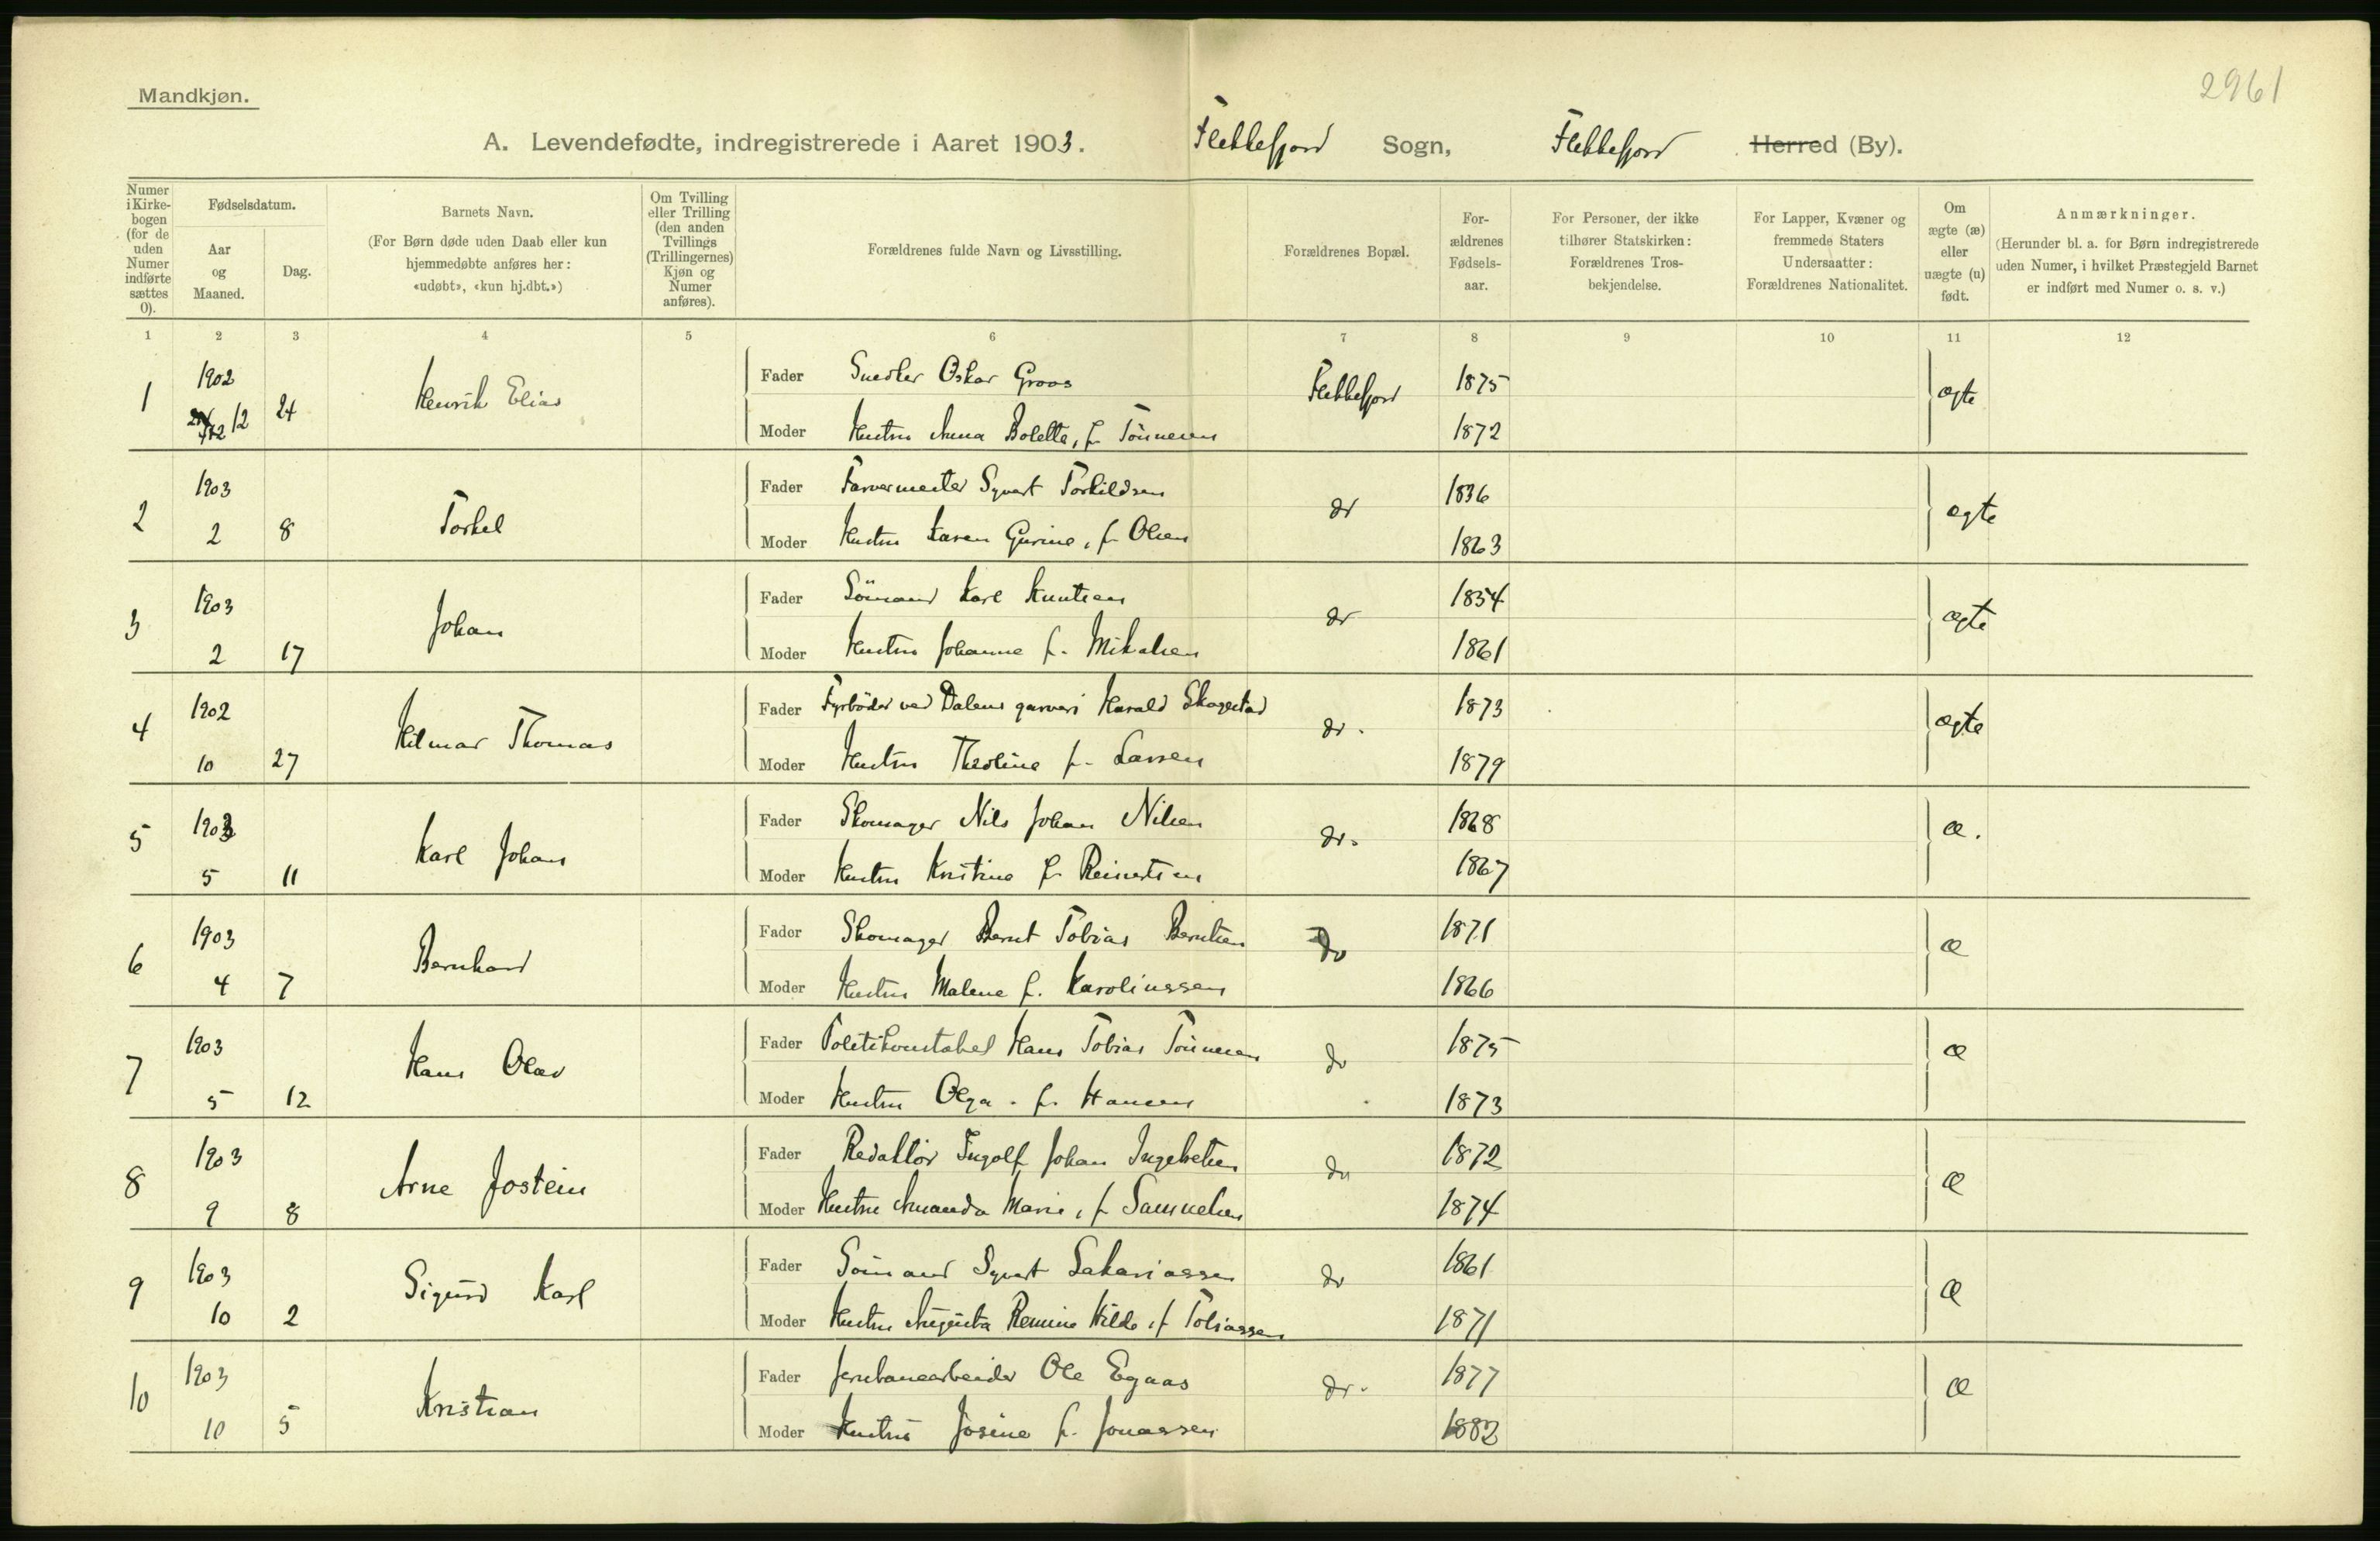 2961
Mandkjøn.
A. Levendefødte, indregistrerede i Aaret 1903. Flekkefjord Sogn, Flekkefjord Herred (By).
Numer i Kirke-bogen (for de uden Numer indførte sættes 0).
Fødselsdatum.
Aar og Maaned.
Dag.
Barnets Navn.
(For Børn døde uden Daab eller kun hjemmedøbte anføres her: «udøbt», «kun hj.dbt.»)
Om Tvilling eller Trilling (den anden Tvillings (Trillingernes) Kjøn og Numer anføres).
Forældrenes fulde Navn og Livsstilling.
Forældrenes Bopæl.
For-ældrenes Fødsels-aar.
For Personer, der ikke tilhører Statskirken: Forældrenes Tros-bekjendelse.
For Lapper, Kvæner og fremmede Staters Undersaatter: Forældrenes Nationalitet.
Om ægte (æ) eller uægte (u) født.
Anmærkninger.
(Herunder bl. a. for Børn indregistrerede uden Numer, i hvilket Præstegjeld Barnet er indført med Numer o. s. v.)
1 2 3 4 5 6 7 8 9 10 11 12
1 1902 12 24 Henrik Elias Fader Snedker Oskar Groos Flekkefjord 1875 ægte
Moder Hustru Anna Bolette, f. Tönnesen 1872
2 1903 2 8 Torkel Fader Farvermester Syvert Torkildsen do 1836 ægte
Moder Hustru Karen Gurine, f. Olsen 1863
3 1903 2 17 Johan Fader Sömand Karl Knutsen do 1854 ægte
Moder Hustru Johanne f. Mikalsen 1861
4 1902 10 27 Hilmar Thomas Fader Fyrböder ved Dalens garveri Harald Skogestad do. 1873 ægte
Moder Hustru Theoline f. Larsen 1879
5 1903 5 11 Karl Johan Fader Skomager Nils Johan Nilsen do. 1868 æ.
Moder Hustru Kristine f. Reinertsen 1867
6 1903 4 7 Bernhard Fader Skomager Bernt Tobias Berntsen do 1871 æ
Moder Hustru Malene f. Karolinssen 1866
7 1903 5 12 Hans Olav Fader Politikonstabel Hans Tobias Tönnesen do 1875 æ
Moder Hustru Olga. f. Hansen 1873
8 1903 9 8 Arne Jostein Fader Redaktör Ingolf Johan Ingebretsen do 1872 æ
Moder Hustru Amanda Marie, f. Samuelsen 1874
9 1903 10 2 Sigurd Karl Fader Sömand Syvert Sakariassen do 1861 æ
Moder Hustru Augusta Hilda, f. Tobiassen 1871
10 1903 10 5 Kristian Fader Jernbanearbeider Ole Egaas do. 1877 æ
Moder Hustru Josine f. Jonassen